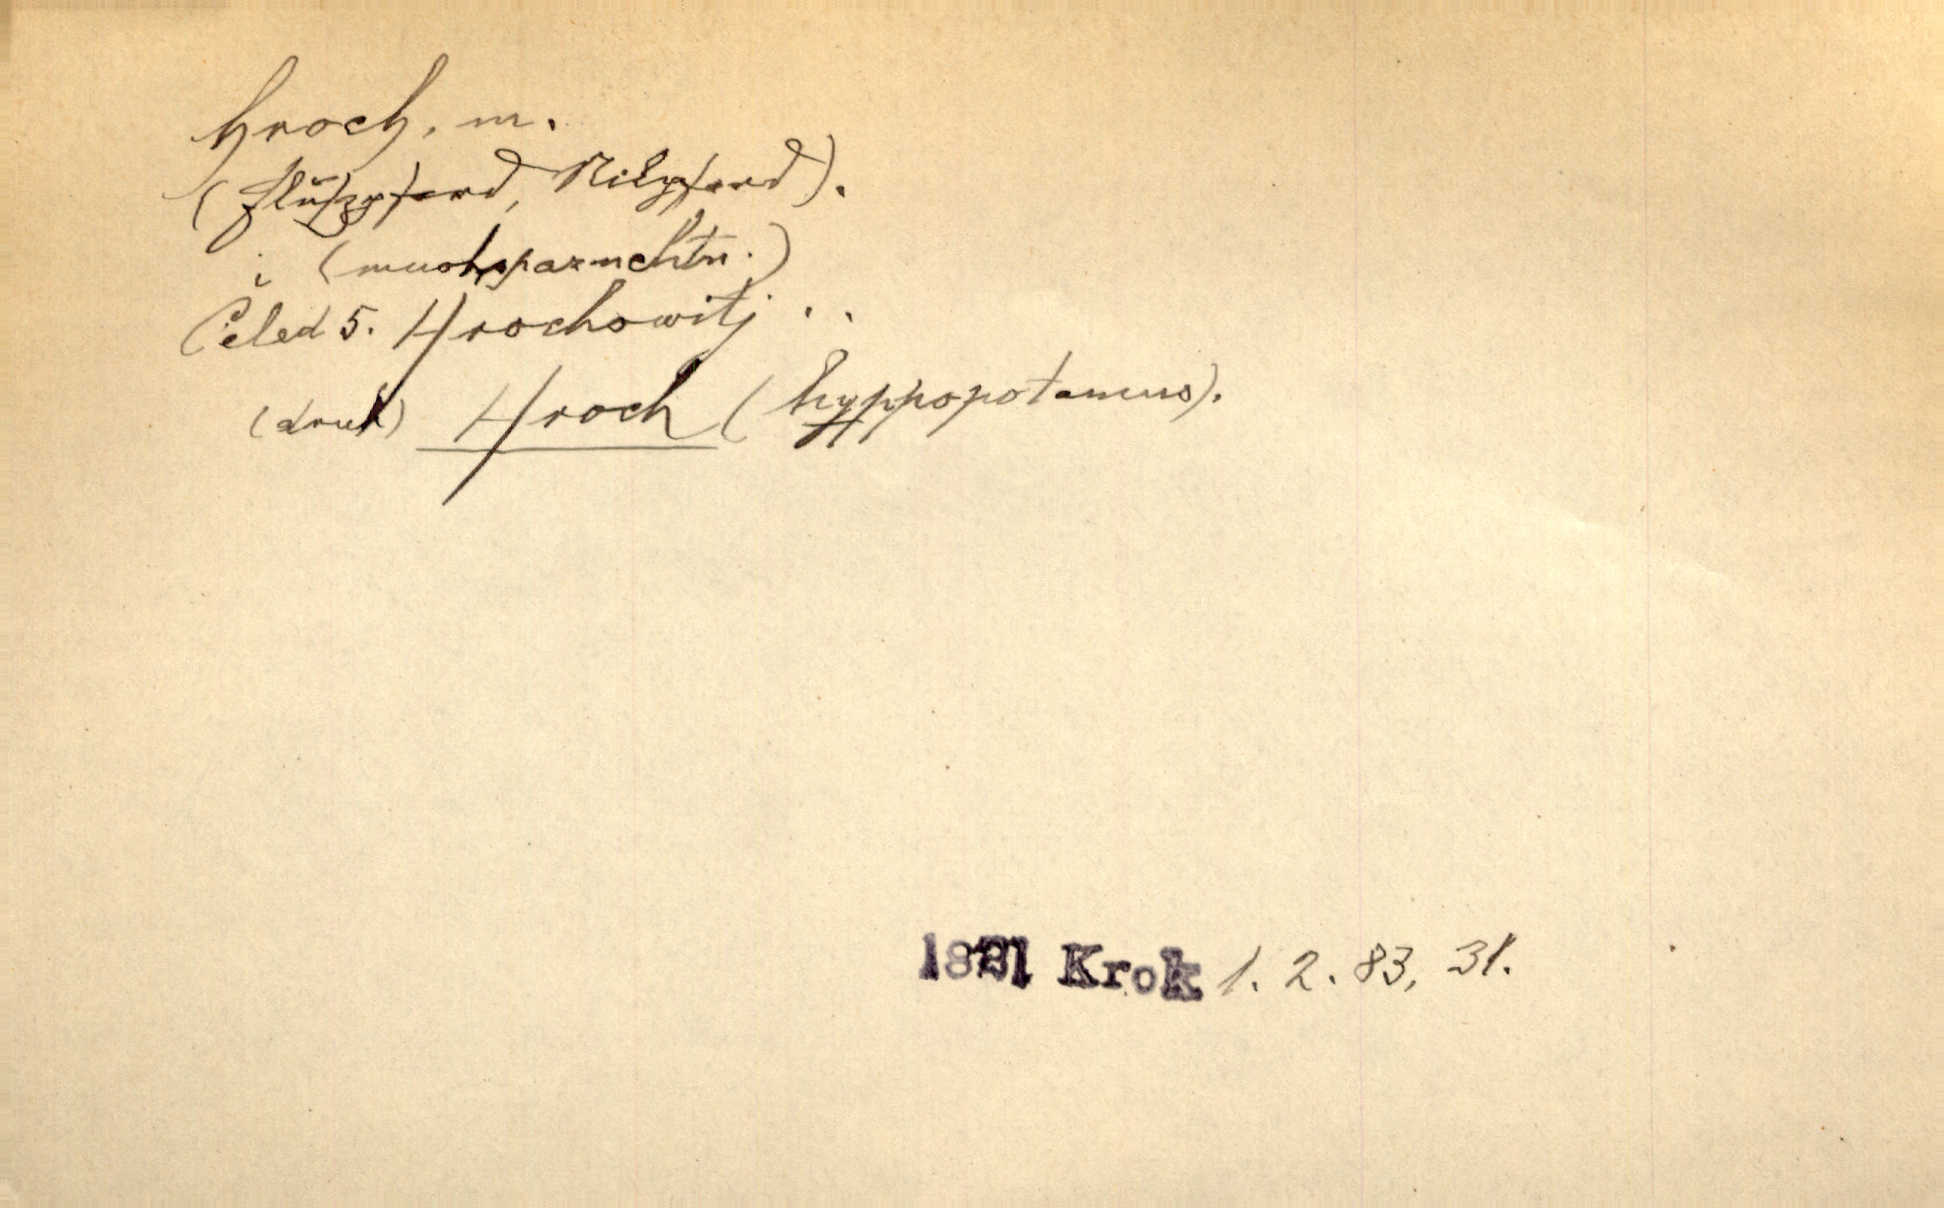 hroch, m.
(Flußpferd, Nilpferd).
i (mnohopaznehtn.)
Čeled 5. Hrochowitj . .
(druh) Hroch (hyppopotamus).
1821 Krok 1. 2. 83, 31.